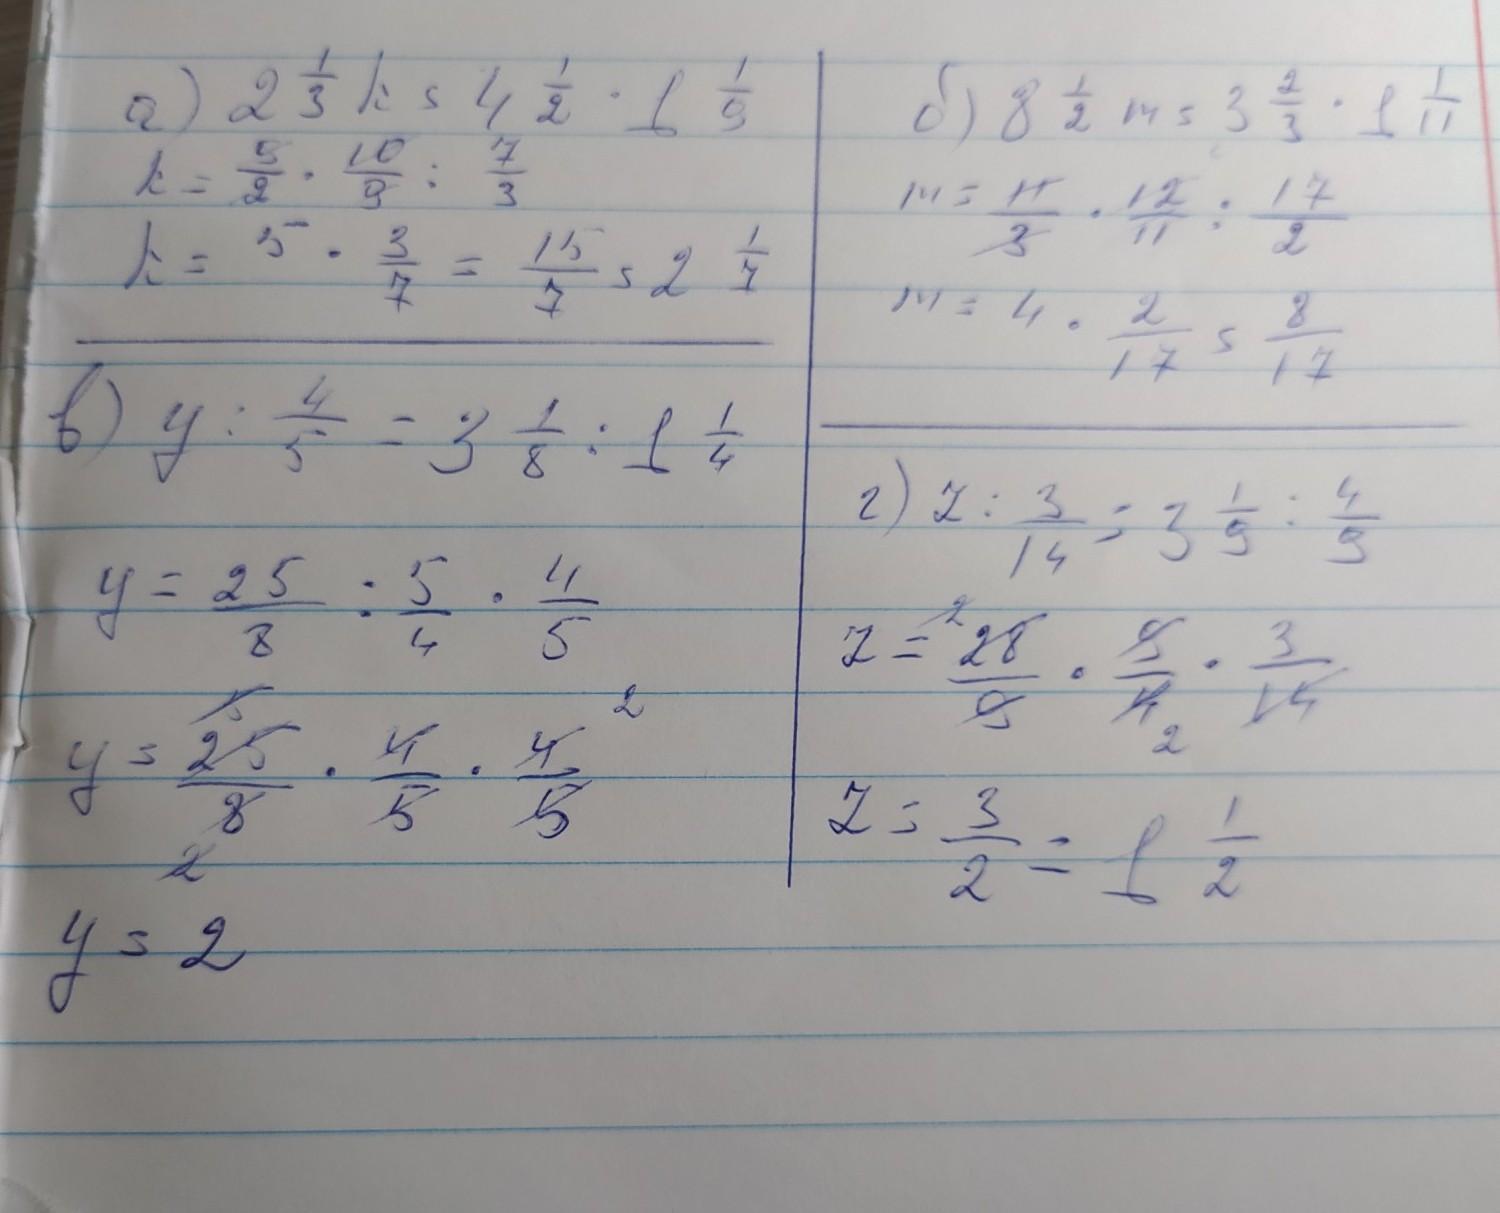 а) 2 1/3 k = 4 1/2 · 1 1/9
k = 9/2 · 10/9 : 7/3
k = 5 · 3/7 = 15/7 = 2 1/7
б) 8 1/2 m = 3 2/3 · 1 1/11
m = 11/3 · 12/11 : 17/2
m = 4 · 2/17 = 8/17
в) y : 4/5 = 3 1/8 : 1 1/4
y = 25/8 : 5/4 · 4/5
5 2
y = 25/8 · 4/5 · 4/5
2
y = 2
г) z : 3/14 = 3 1/9 : 4/9
2
z = 28/9 · 9/4 · 3/14
2
z = 3/2 = 1 1/2